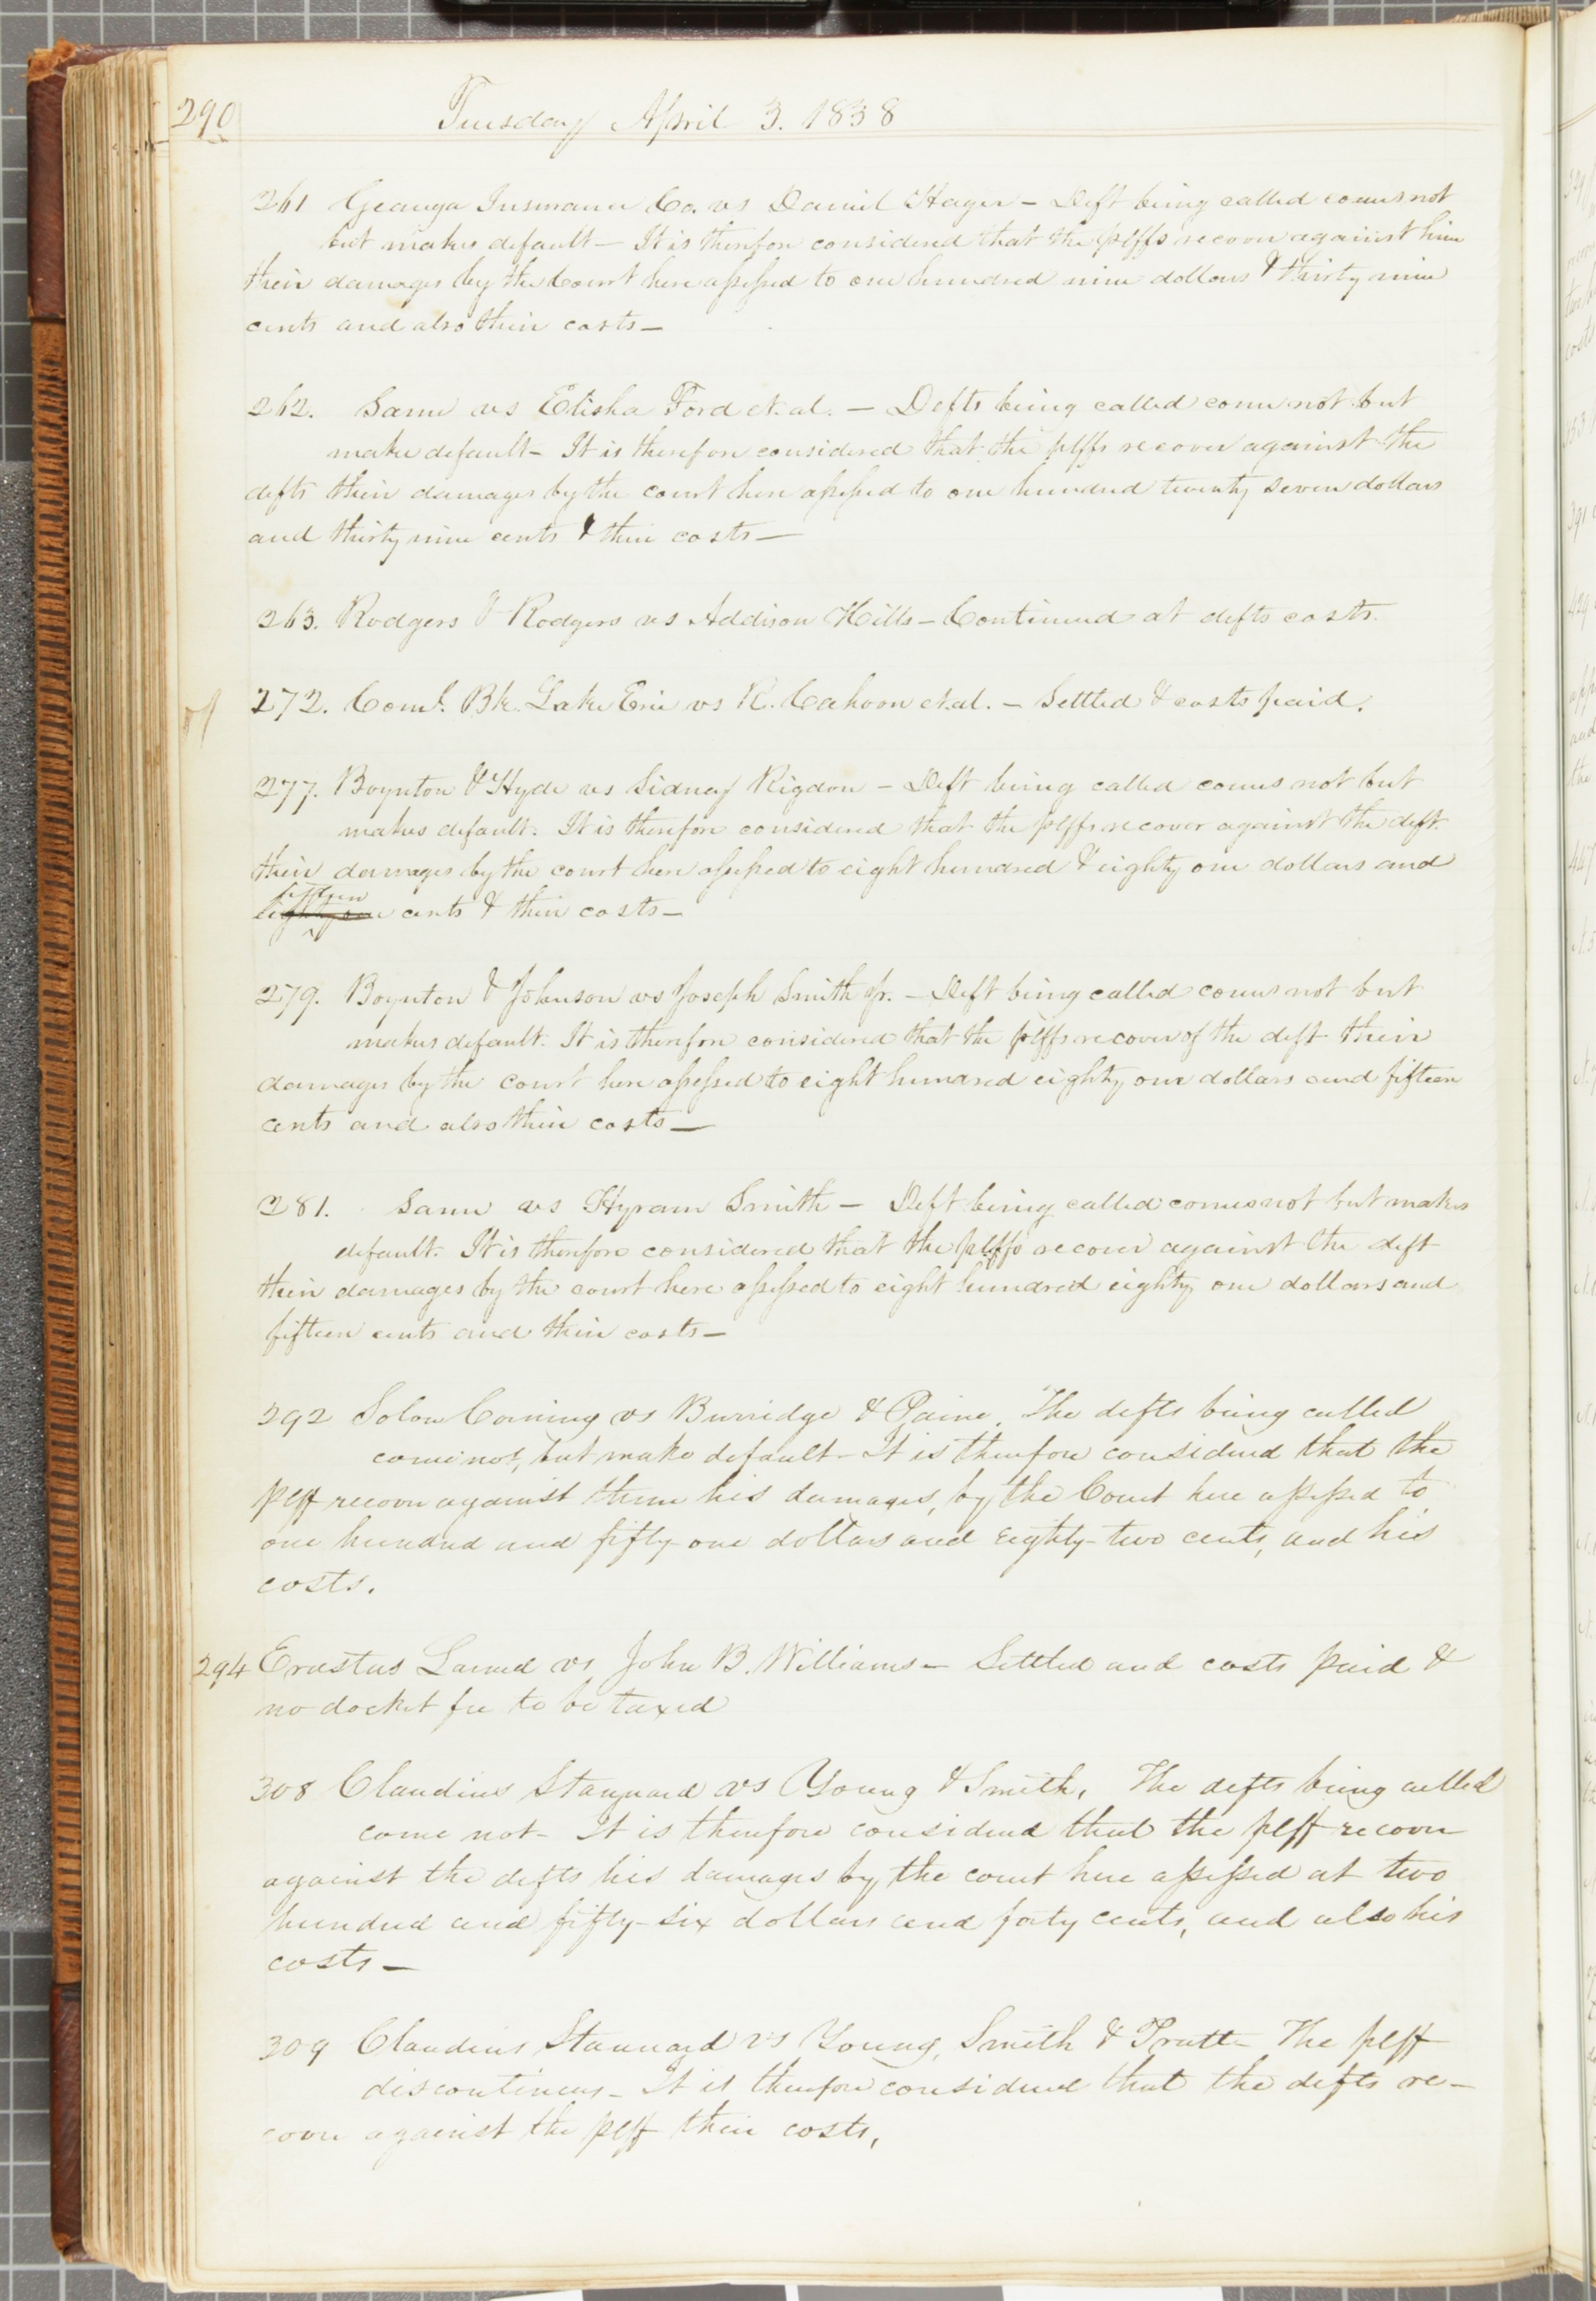 290
Tuesday April 3. 1838
261 Geauga Insurance Co. vs Daniel Hager – Deft being called comes not
but makes default – It is therefore considered that the plffs recover against him
their damages by the Court here assessed to one hundred nine dollars & thirty nine
cents and also their costs –
262. Same vs Elisha Ford et. al. – Defts being called come not but
make default – It is therefore considered that the plffs recover against the
defts their damages by the court here assessed to one hundred twenty seven dollars
and thirty nine cents & their costs –
263. Rodgers & Rodgers vs Addison Hills – Continued at defts costs.
272. Coml. Bk. Lake Erie vs R. Cahoon et.al. – Settled & costs paid.
277. Boynton & Hyde vs Sidney Rigdon – Deft being called comes not but
makes default. It is therefore considered that the plffs recover against the deft.
their damages by the court here assessed to eight hundred & eighty one dollars and
fifteen
eighty one cents & their costs –
279. Boynton & Johnson vs Joseph Smith jr. – Deft being called comes not but
makes default. It is therefore considered that the plffs recover of the deft their
damages by the court here assessed to eight hundred eighty one dollars and fifteen
cents and also their costs –
281. Same vs Hyram Smith – Deft being called comes not but makes
default. It is therefore considered that the plffs recover against the deft
their damages by the court here assessed to eight hundred eighty one dollars and
fifteen cents and their costs –
292 Solon Corning vs Burridge & Paine. The defts being called
come not, but make default – It is therefore considered that the
plff recover against them his damages, by the Court here assessed to
one hundred and fifty-one dollars and eighty-two cents, and his
costs.
294 Erastus Larned vs John B. Williams – Settled and costs paid &
no docket fee to be taxed
308 Claudius Stannard vs Young & Smith, The defts being called
come not – It is therefore considered that the plff recover
against the defts his damages by the court here assessed at two
hundred and fifty-six dollars and forty cents, and also his
costs –
309 Claudius Stannard vs Young, Smith & Pratt – The plff
discontinues – It is therefore considered that the defts re-
cover against the plff their costs,